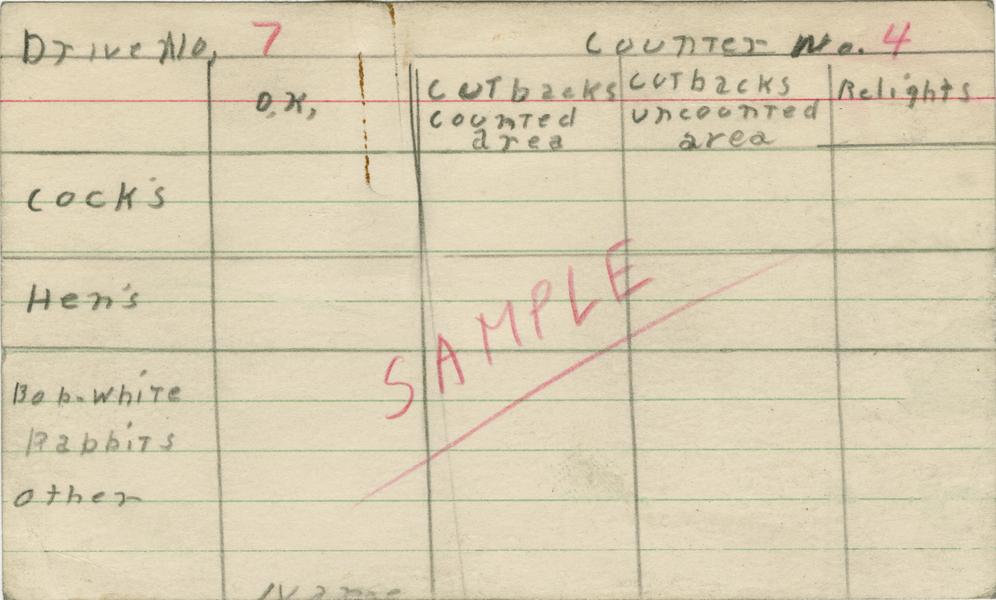 Drive No. 7 Counter No. 4
O.K. Cutbacks counted area Cutbacks uncounted area Relights
Cock's
Hen's
SAMPLE
Bob-White
Rabbits
Other
Name